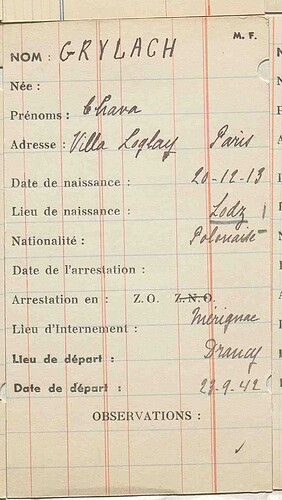 M. F.
NOM : GRYLACH
Née :
Prénoms : Chava
Adresse : Villa Loglay Paris
Date de naissance : 20-12-13
Lieu de naissance : Lodz
Nationalité : Polonaise
Date de l'arrestation :
Arrestation en : Z.O. Z.N.O.
Lieu d'Internement : Mérignac
Lieu de départ : Drancy
Date de départ : 23-9-42
OBSERVATIONS :